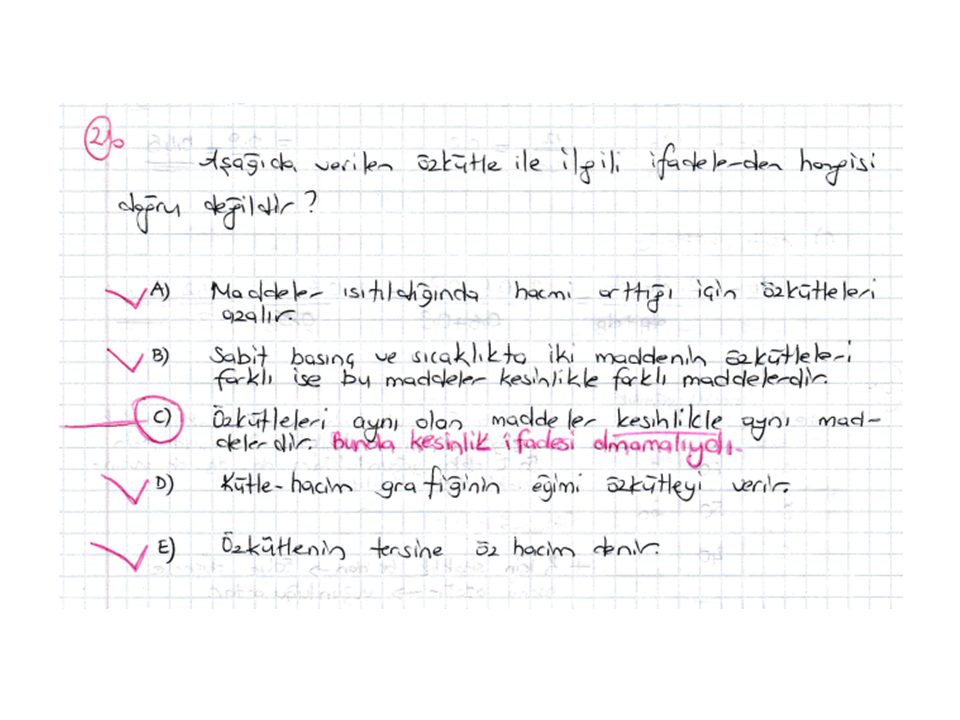 2)
Aşağıda verilen özkütle ile ilgili ifadelerden hangisi
doğru değildir?
A) Maddeler ısıtıldığında hacmi arttığı için özkütleleri
azalır.
B) Sabit basınç ve sıcaklıkta iki maddenin özkütleleri
farklı ise bu maddeler kesinlikle farklı maddelerdir.
C) Özkütleleri aynı olan maddeler kesinlikle aynı mad-
delerdir. Bunda kesinlik ifadesi olmamalıydı.
D) Kütle-hacim grafiğinin eğimi özkütleyi verir.
E) Özkütlenin tersine öz hacim denir.